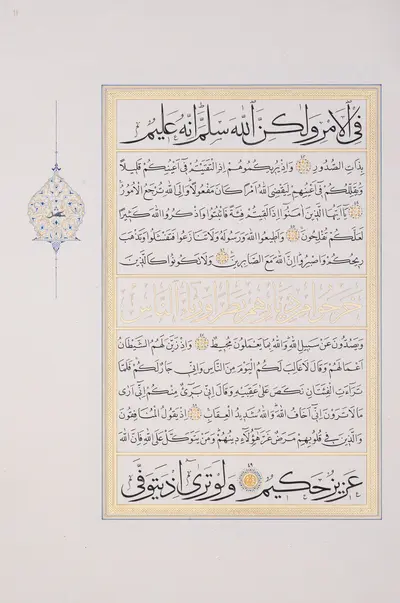 فِي الْأَمْرِ وَلَكِنَّ اللّٰهَ سَلَّمَ إِنَّهُ عَلِيمٌ
بِذَاتِ الصُّدُورِ وَإِذْ يُرِيكُمُوهُمْ إِذِ الْتَقَيْتُمْ فِي أَعْيُنِكُمْ قَلِيلًا
وَيُقَلِّلُكُمْ فِي أَعْيُنِهِمْ لِيَقْضِيَ اللّٰهُ أَمْرًا كَانَ مَفْعُولًا وَإِلَى اللّٰهِ تُرْجَعُ الْأُمُورُ
يَا أَيُّهَا الَّذِينَ آمَنُوا إِذَا لَقِيتُمْ فِئَةً فَاثْبُتُوا وَاذْكُرُوا اللّٰهَ كَثِيرًا
لَعَلَّكُمْ تُفْلِحُونَ وَأَطِيعُوا اللّٰهَ وَرَسُولَهُ وَلَا تَنَازَعُوا فَتَفْشَلُوا وَتَذْهَبَ
رِيحُكُمْ وَاصْبِرُوا إِنَّ اللّٰهَ مَعَ الصَّابِرِينَ وَلَا تَكُونُوا كَالَّذِينَ
خَرَجُوا مِنْ دِيَارِهِمْ بَطَرًا وَرِئَاءَ النَّاسِ
وَيَصُدُّونَ عَنْ سَبِيلِ اللّٰهِ وَاللّٰهُ بِمَا يَعْمَلُونَ مُحِيطٌ وَإِذْ زَيَّنَ لَهُمُ الشَّيْطَانُ
أَعْمَالَهُمْ وَقَالَ لَا غَالِبَ لَكُمُ الْيَوْمَ مِنَ النَّاسِ وَإِنِّي جَارٌ لَكُمْ فَلَمَّا
تَرَاءَتِ الْفِئَتَانِ نَكَصَ عَلَى عَقِبَيْهِ وَقَالَ إِنِّي بَرِيءٌ مِنْكُمْ إِنِّي أَرَى
مَا لَا تَرَوْنَ إِنِّي أَخَافُ اللّٰهَ وَاللّٰهُ شَدِيدُ الْعِقَابِ إِذْ يَقُولُ الْمُنَافِقُونَ
وَالَّذِينَ فِي قُلُوبِهِمْ مَرَضٌ غَرَّ هَؤُلَاءِ دِينُهُمْ وَمَنْ يَتَوَكَّلْ عَلَى اللّٰهِ فَإِنَّ اللّٰهَ
عَزِيزٌ حَكِيمٌ وَلَوْ تَرَى إِذْ يَتَوَفَّى